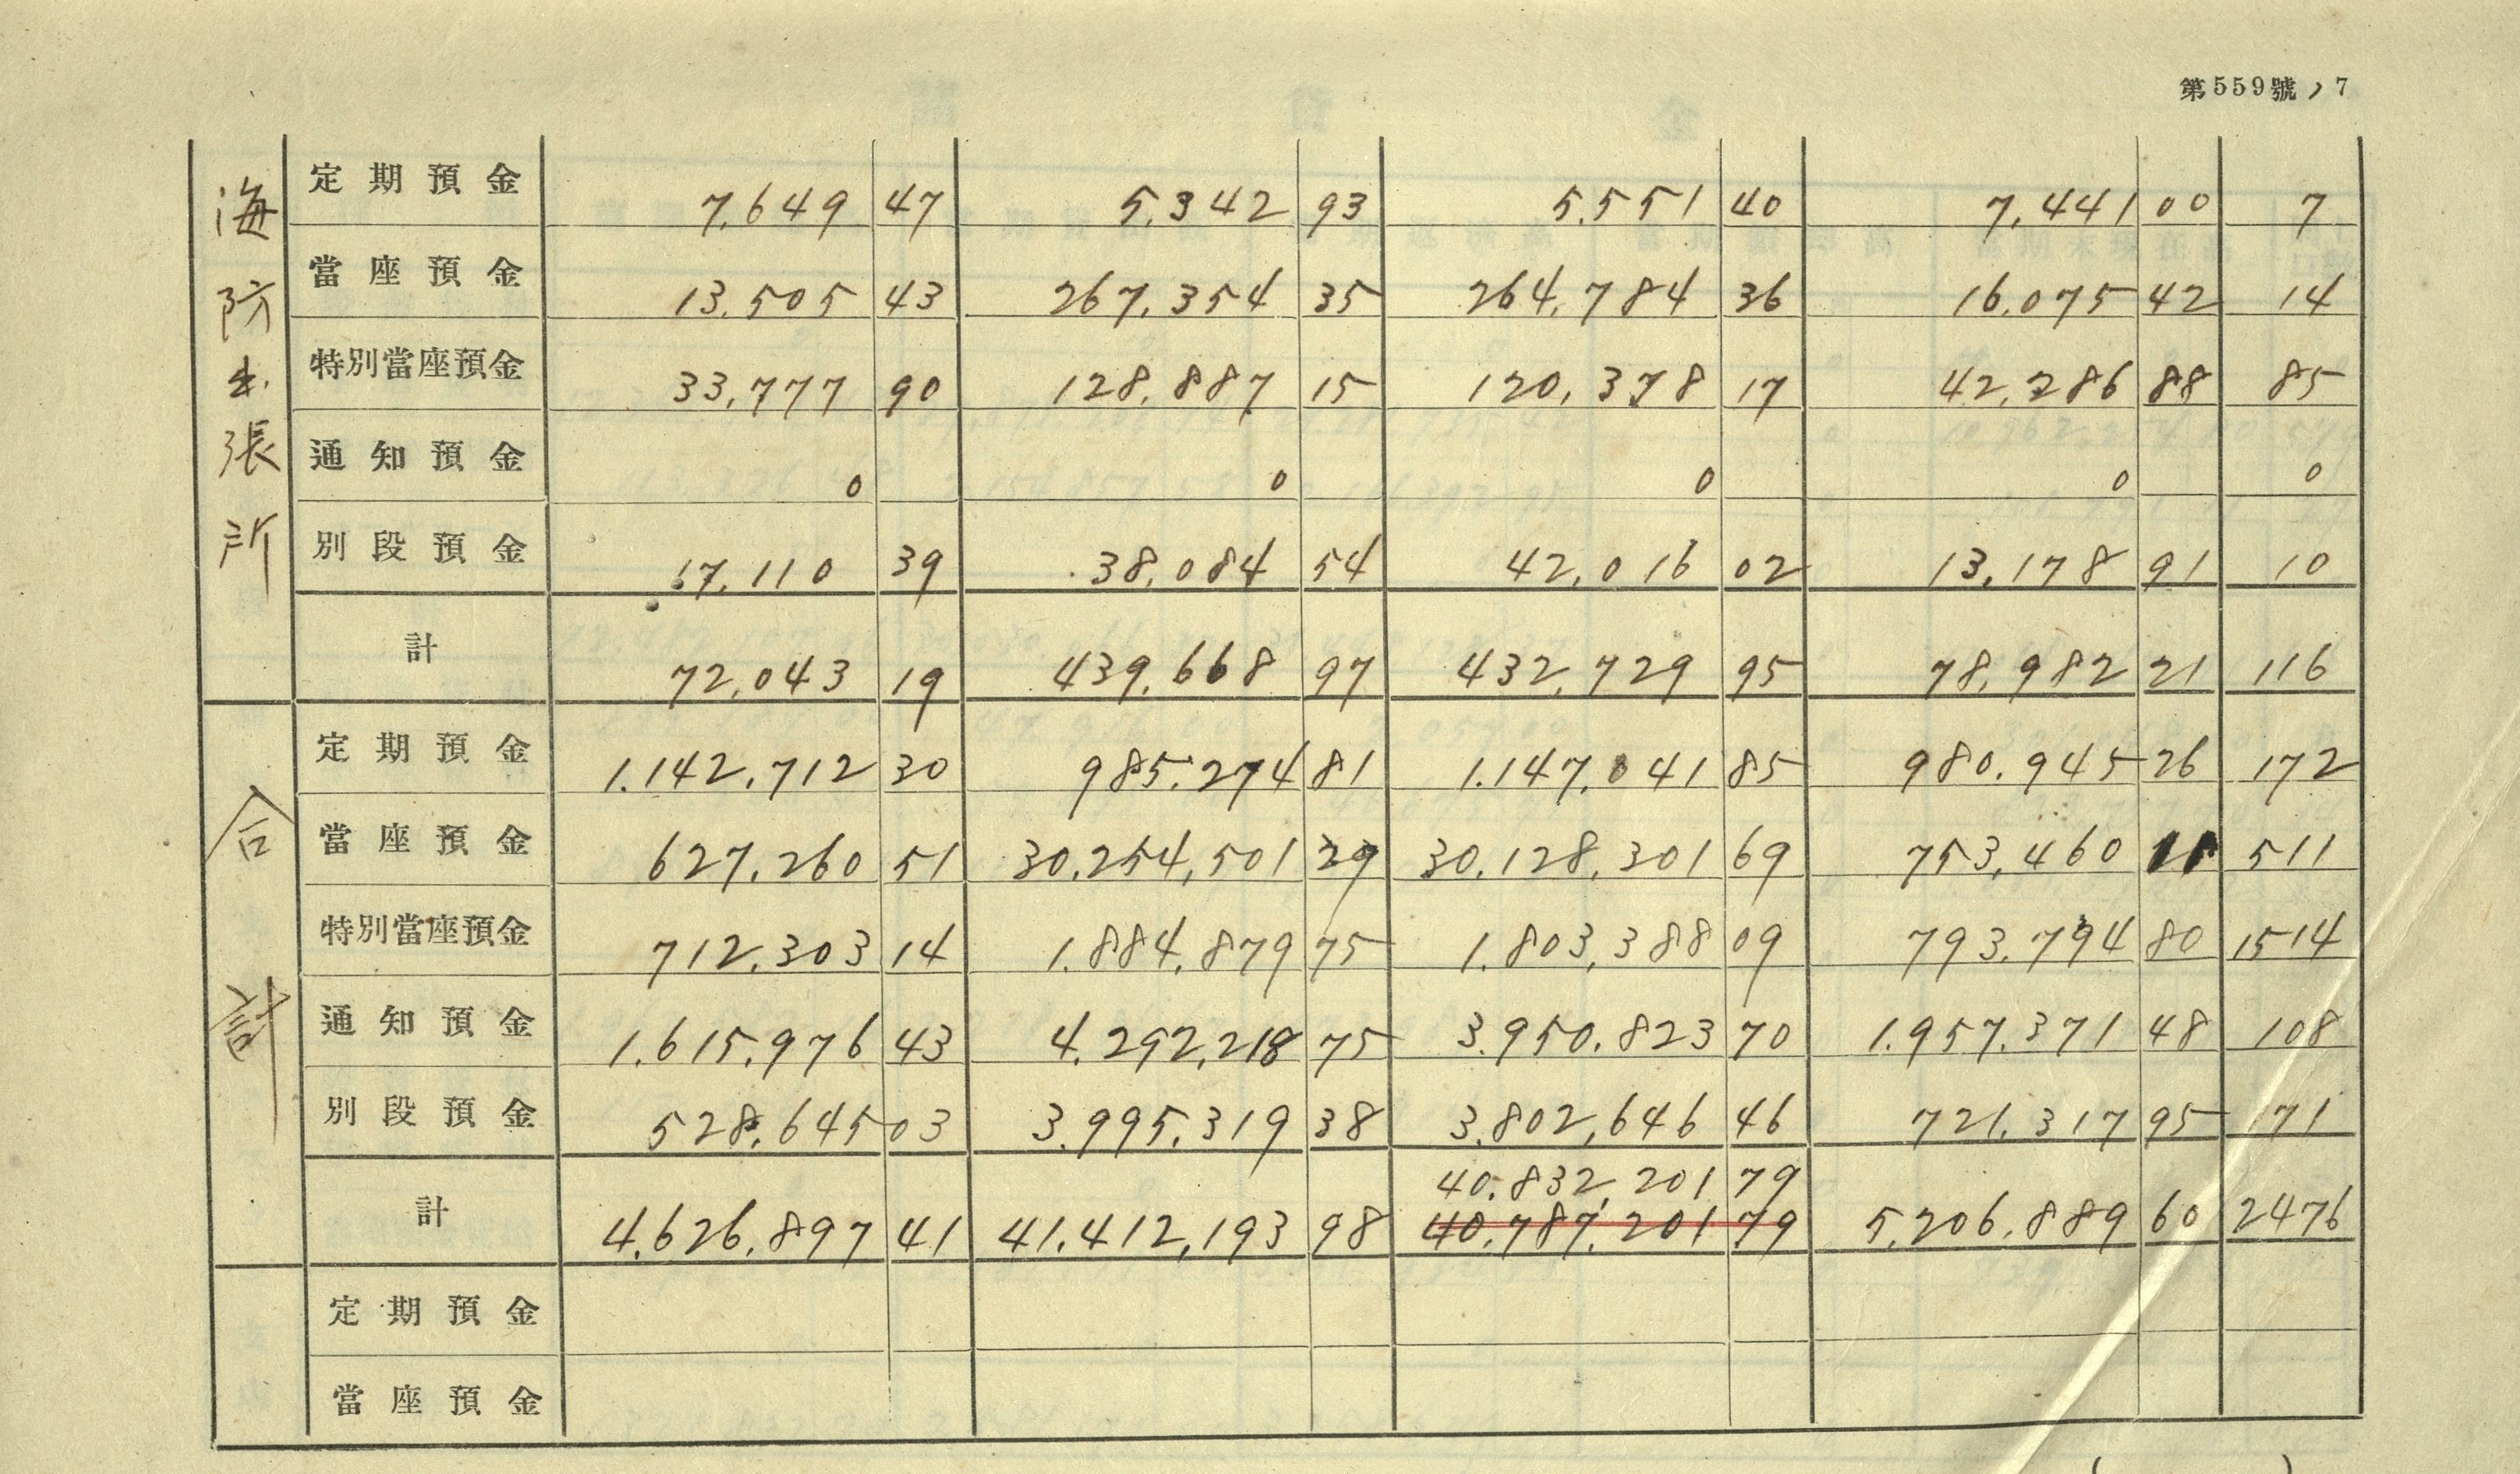 第559號ノ7
海防出張所
定期預金 7,649 47 5,342 93 5,551 40 7,441 00 7
當座預金 13,505 43 267,354 35 264,784 36 16,075 42 14
特別當座預金 33,777 90 128,887 15 120,378 17 42,286 88 85
通知預金 0 0 0 0 0
別段預金 17,110 39 38,084 54 42,016 02 13,178 91 10
計 72,043 19 439,668 97 432,729 95 78,982 21 116
合計
定期預金 1,142,712 30 985,274 81 1,147,041 85 980,945 26 172
當座預金 627,260 51 30,254,501 29 30,128,301 69 753,460 11 511
特別當座預金 712,303 14 1,884,879 75 1,803,388 09 793,794 80 1514
通知預金 1,615,976 43 4,292,218 75 3,950,823 70 1,957,371 48 108
別段預金 528,645 03 3,995,319 38 3,802,646 46 721,317 95 71
40,832,201 79
計 4,626,897 41 41,412,193 98 40,787,201 79 5,206,889 60 2476
定期預金
當座預金